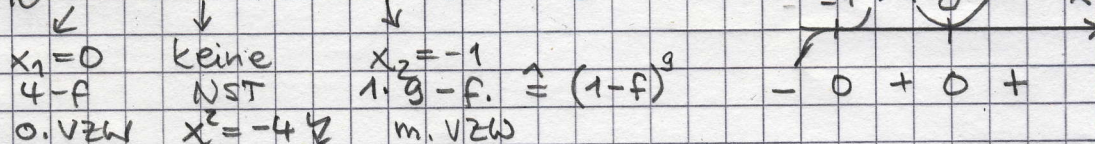 x₁ = 0 keine x₂ = -1
4-f NST 1. 9-f. ≙ (1-f)⁹ - 0 + 0 +
o. VZW x² = -4 ↯ m. VZW